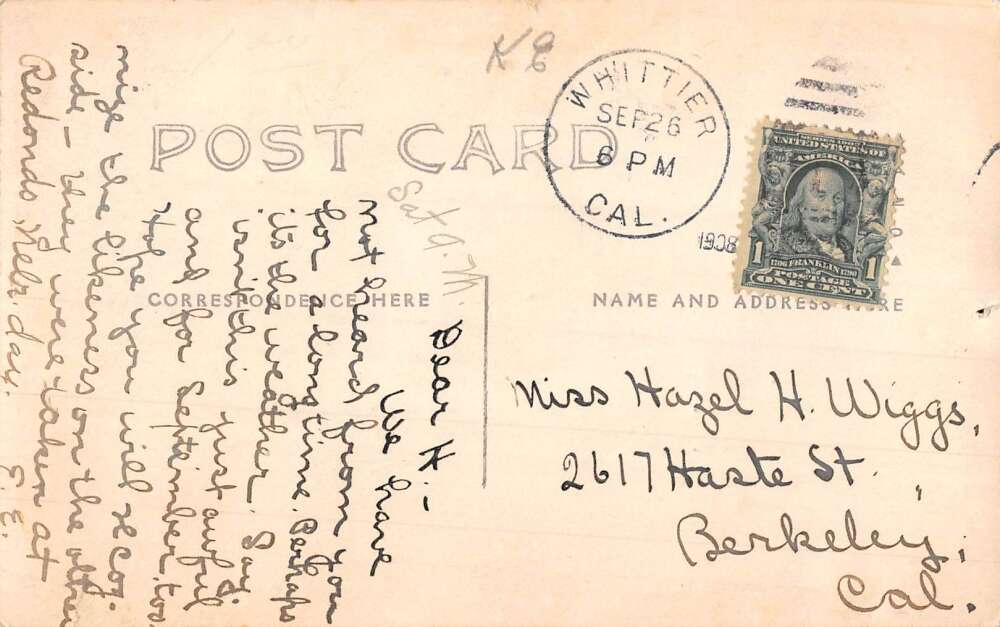 K E
POST CARD
CORRESPONDENCE HERE
NAME AND ADDRESS HERE
WHITTIER
SEP 26
6 PM
CAL.
1908
UNITED STATES OF
AMERICA
1706 FRANKLIN 1790
POSTAGE
1 ONE CENT 1
Sat A.M.
Dear H.-
We have
not heard from you
for a long time. Perhaps
its the weather. Say,
isn't this just awful
and for September, too.
Hope you will recog-
nize the likeness on the other
side - they were taken at
Redondo, Melr. day.
E. E.
Miss Hazel H. Wiggs,
2617 Haste St.,
Berkeley,
Cal.